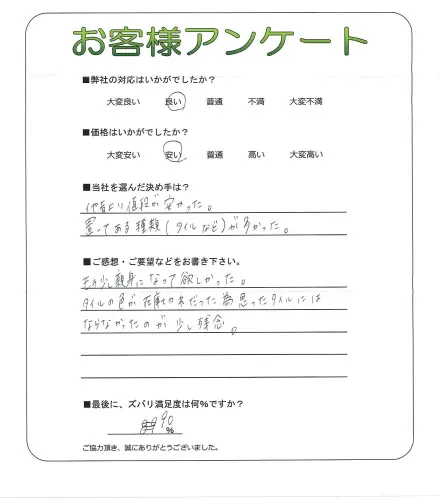 お客様アンケート
■弊社の対応はいかがでしたか?
大変良い 良い 普通 不満 大変不満
■価格はいかがでしたか?
大変安い 安い 普通 高い 大変高い
■当社を選んだ決め手は?
他者より値段が安かった。
置いてある種類(タイルなど)が多かった。
■ご感想・ご要望などをお書き下さい。
もう少し親身になって欲しかった。
タイルの色が在庫切れだった為思ったタイルには
ならなかったのが少し残念。
■最後に、ズバリ満足度は何%ですか?
90
%
ご協力頂き、誠にありがとうございました。